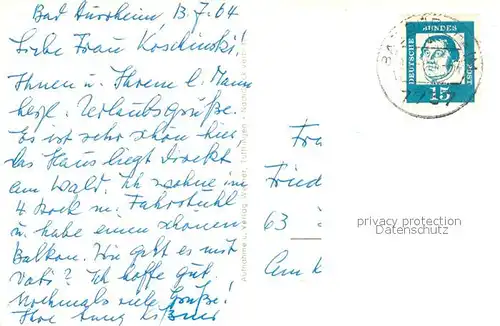 Bad Dürrheim, 13.7.64
Liebe Frau Koschinski!
Ihnen u. Ihrem l. Mann
herzl. Urlaubsgrüße.
Es ist sehr schön hier,
das Haus liegt direkt
am Wald. Ich wohne im
4 Stock m. Fahrstuhl
u. habe einen schönen
Balkon. Wie geht es mit
Vati? Ich hoffe gut.
Nochmals viele Grüße!
Ihre
Aufnahme u. Verlag Tuttlingen
DEUTSCHE BUNDESPOST
15
BAD
Frau
Fried
63
Am K
privacy protection
Datenschutz